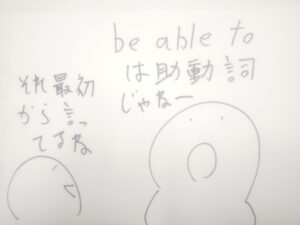 be able to
は助動詞
じゃねー
それ最初
から言っ
てるね